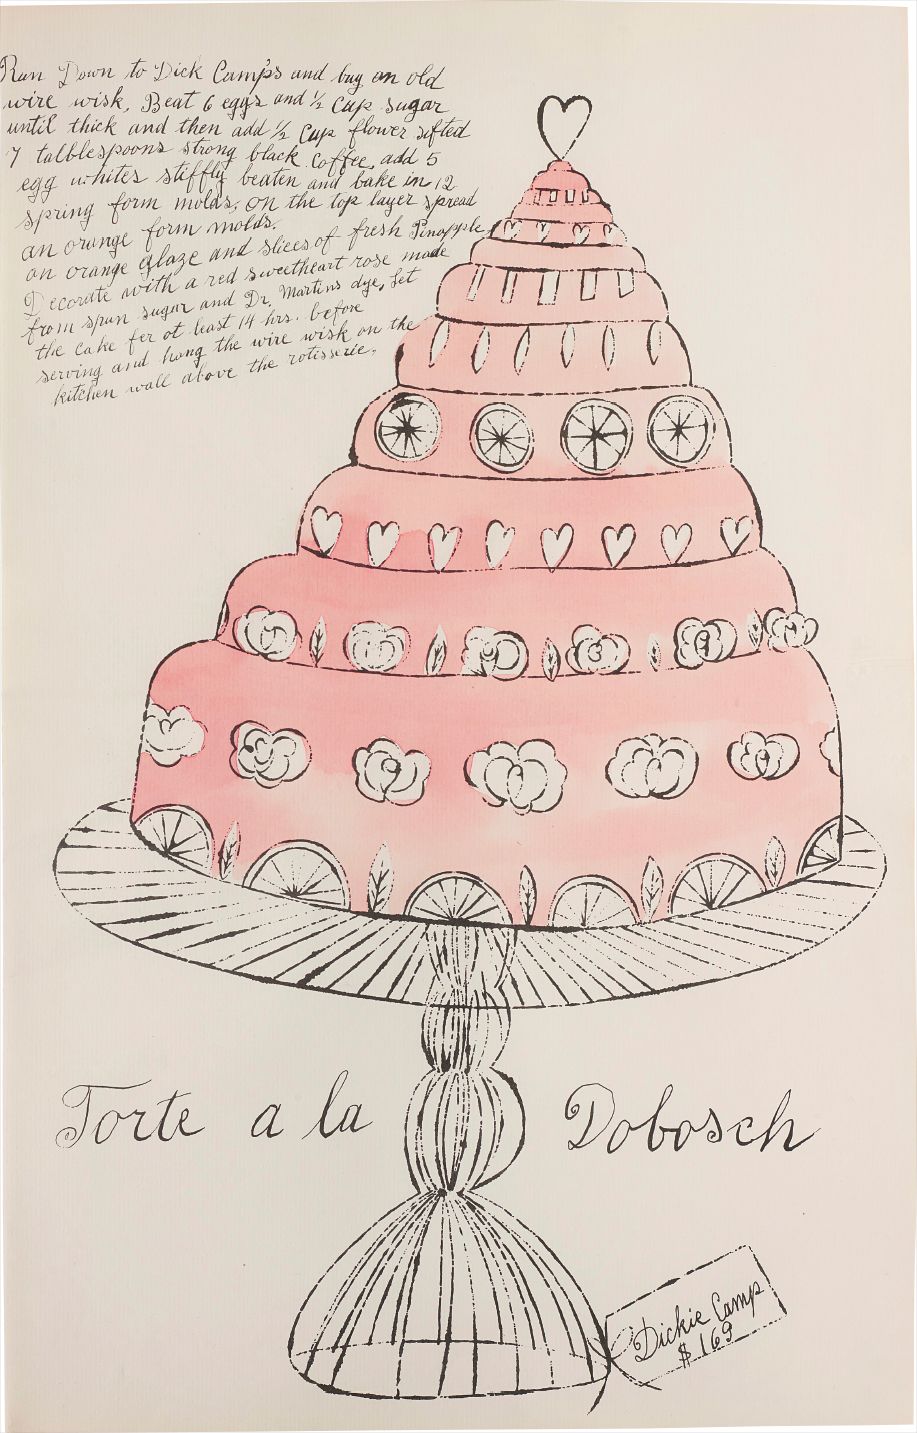 Run Down to Dick Camp's and buy an old
wire wisk. Beat 6 eggs and ½ cup sugar
until thick and then add ½ cup flower sifted
7 talblespoons strong black coffee, add 5
egg whites stiffly beaten and bake in 12
spring form molds, on the top layer spread
an orange form molds.
an orange glaze and slices of fresh Pinapple,
Decorate with a red sweetheart rose made
from spun sugar and Dr. Martins dye, Let
the cake fer at least 14 hrs. before
serving and hang the wire wisk on the
kitchen wall above the rotisserie.
Torte a la Dobosch
Dickie Camp
$ 169